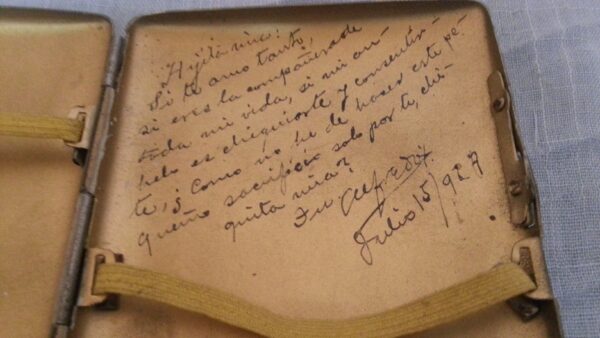 Hijita mia:
Si te amo tanto,
si eres la compañera de
toda mi vida, si mi an-
helo es chiquiarte y consentir-
te, ¿ como no he de hacer este pe-
queño sacrificio solo por ti, chi-
quita mia?
Tu Alfredo.
Julio 15/927.